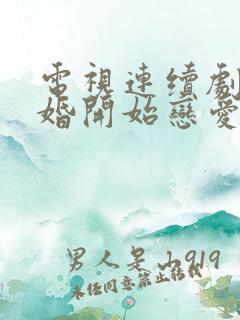 電視連續劇
婚開始戀愛
男人是山919
未經同意禁止轉載